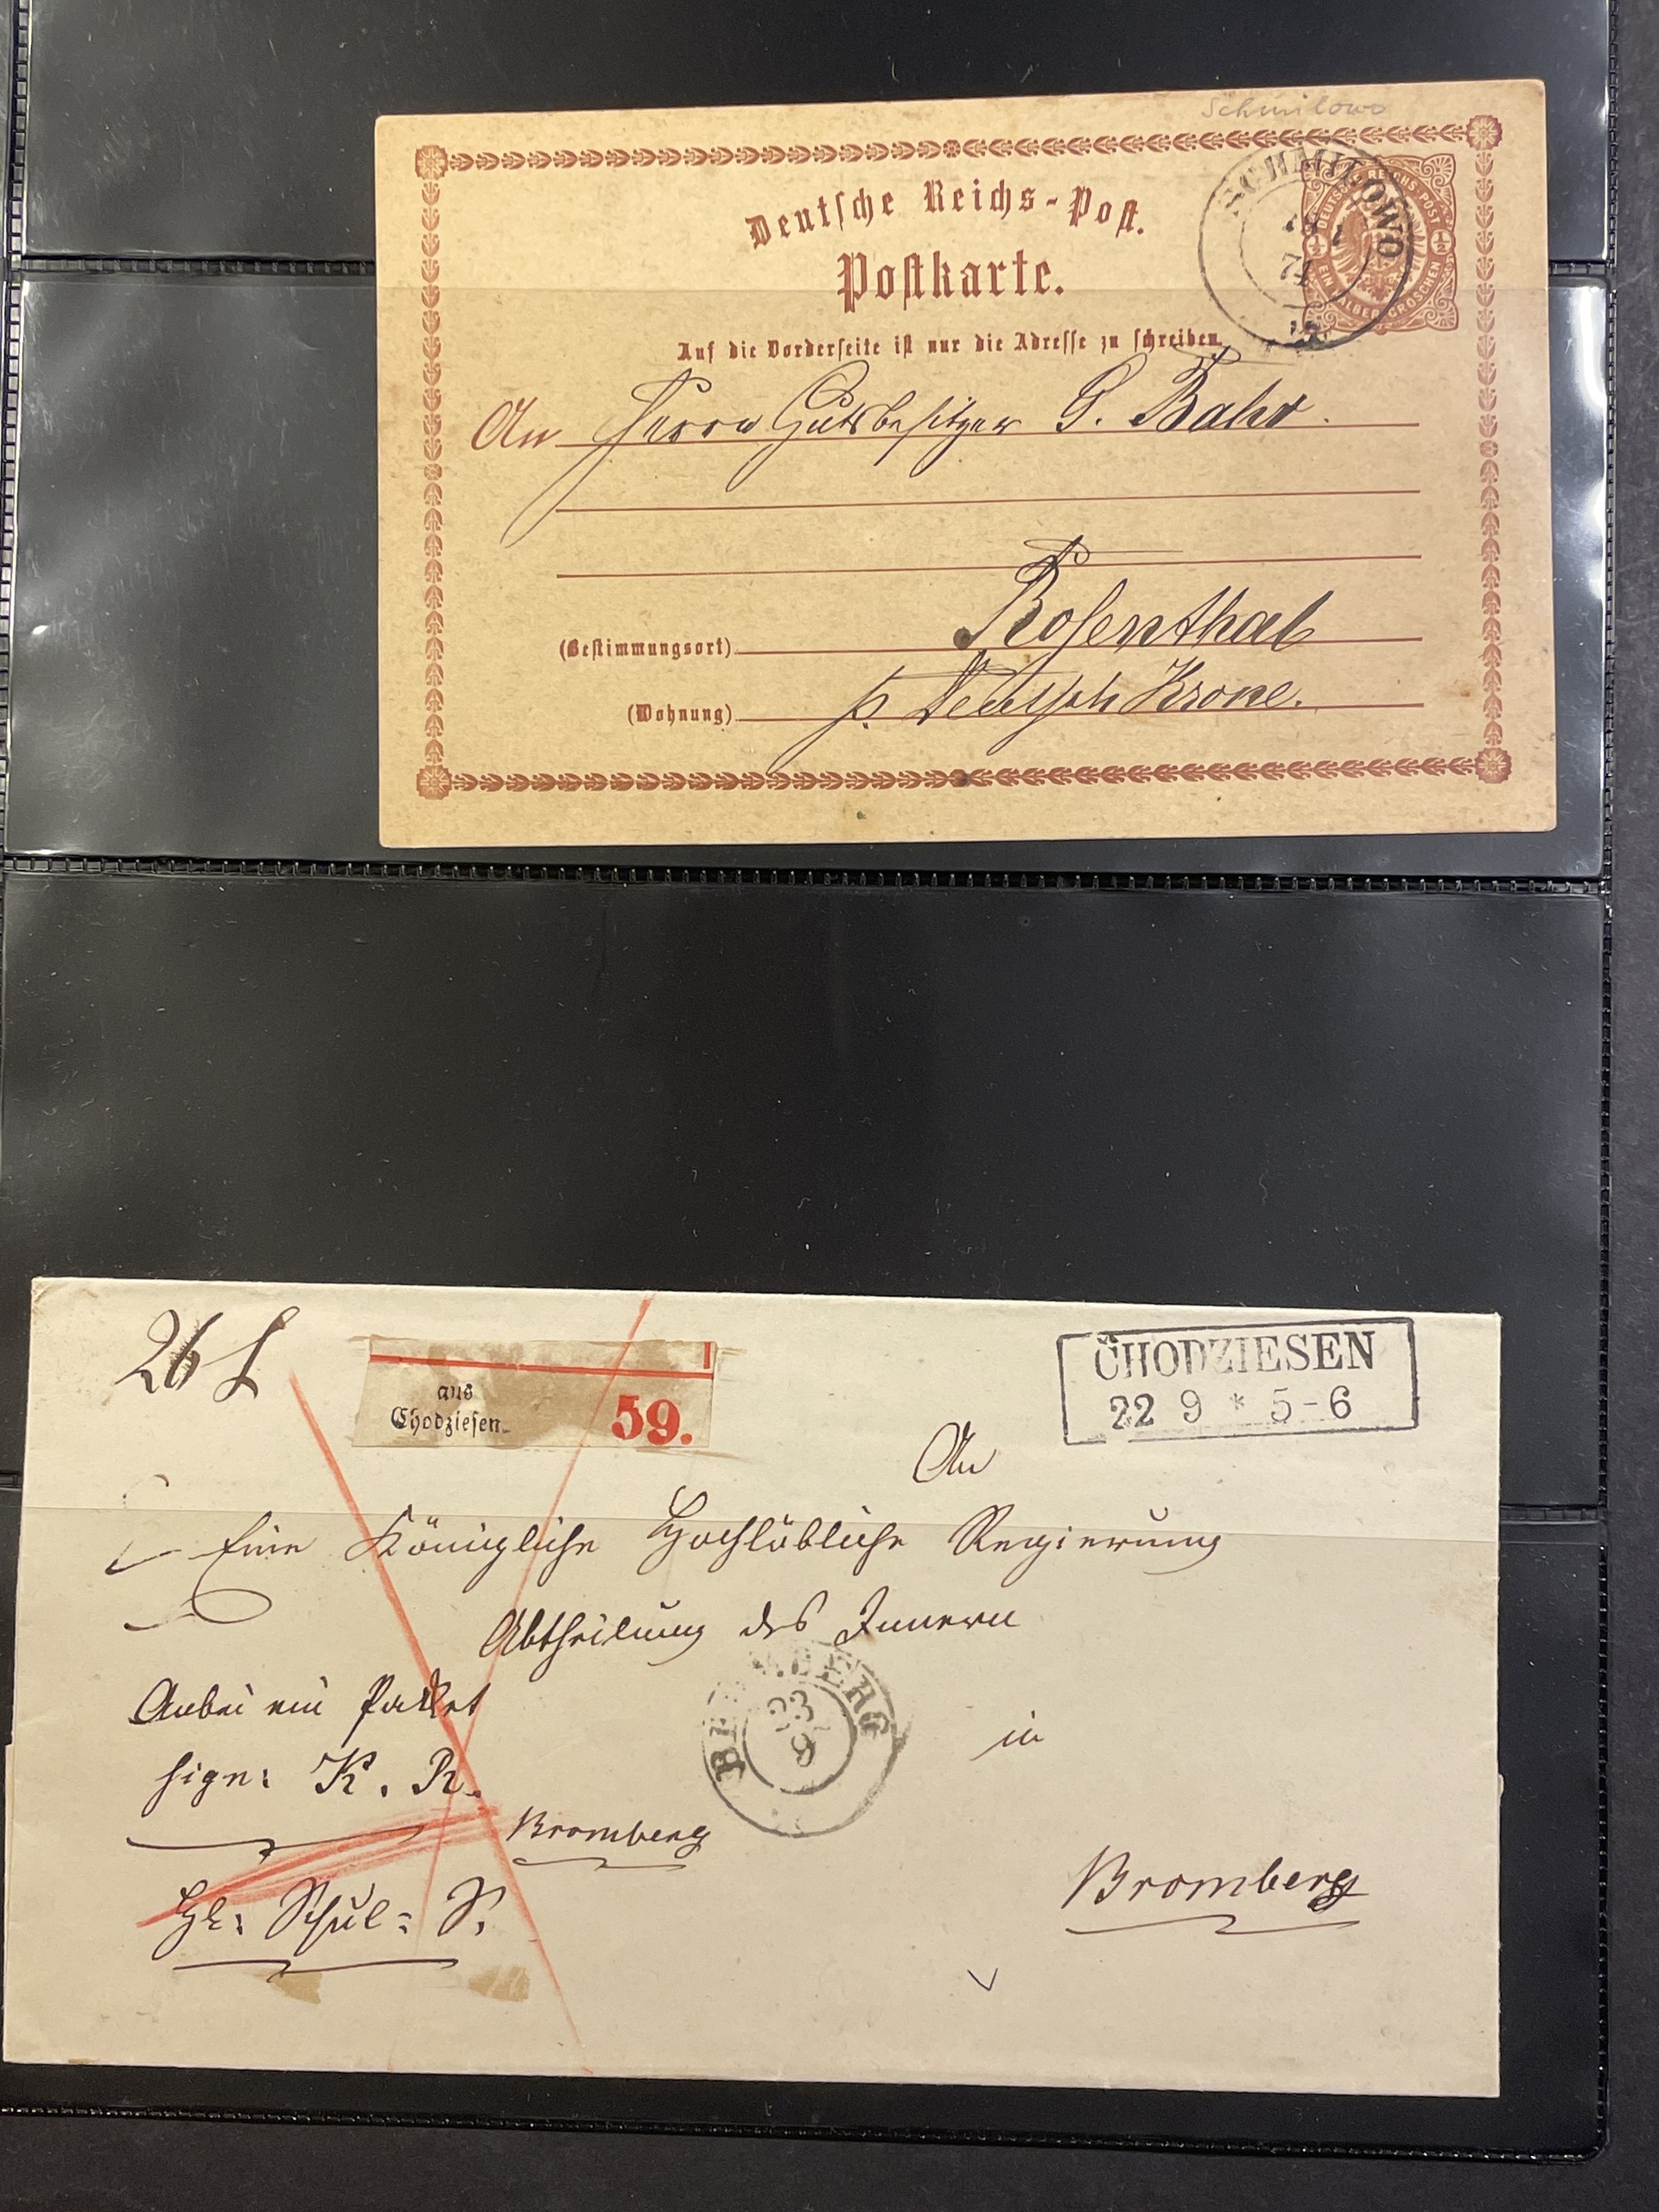 Schmilowo
Deutsche Reichs-Post.
Postkarte.
SCHMILOWO
74
DEUTSCHE REICHS-POST
½ ½
EIN HALBER GROSCHEN
Auf die Vorderseite ist nur die Adresse zu schreiben.
An Herrn Gutsbesitzer G. Bahr.
(Bestimmungsort) Rosenthal
(Wohnung) p. Deutsch Krone.
26 L
aus
Chodziesen.
59.
CHODZIESEN
22 9 * 5-6
An
Eine Königliche Hochlöbliche Regierung
Abtheilung des Innern
Anbei ein Packet
sign: K. R.
Bromberg
BROMBERG
23
9
in
Bromberg
Schul- S.